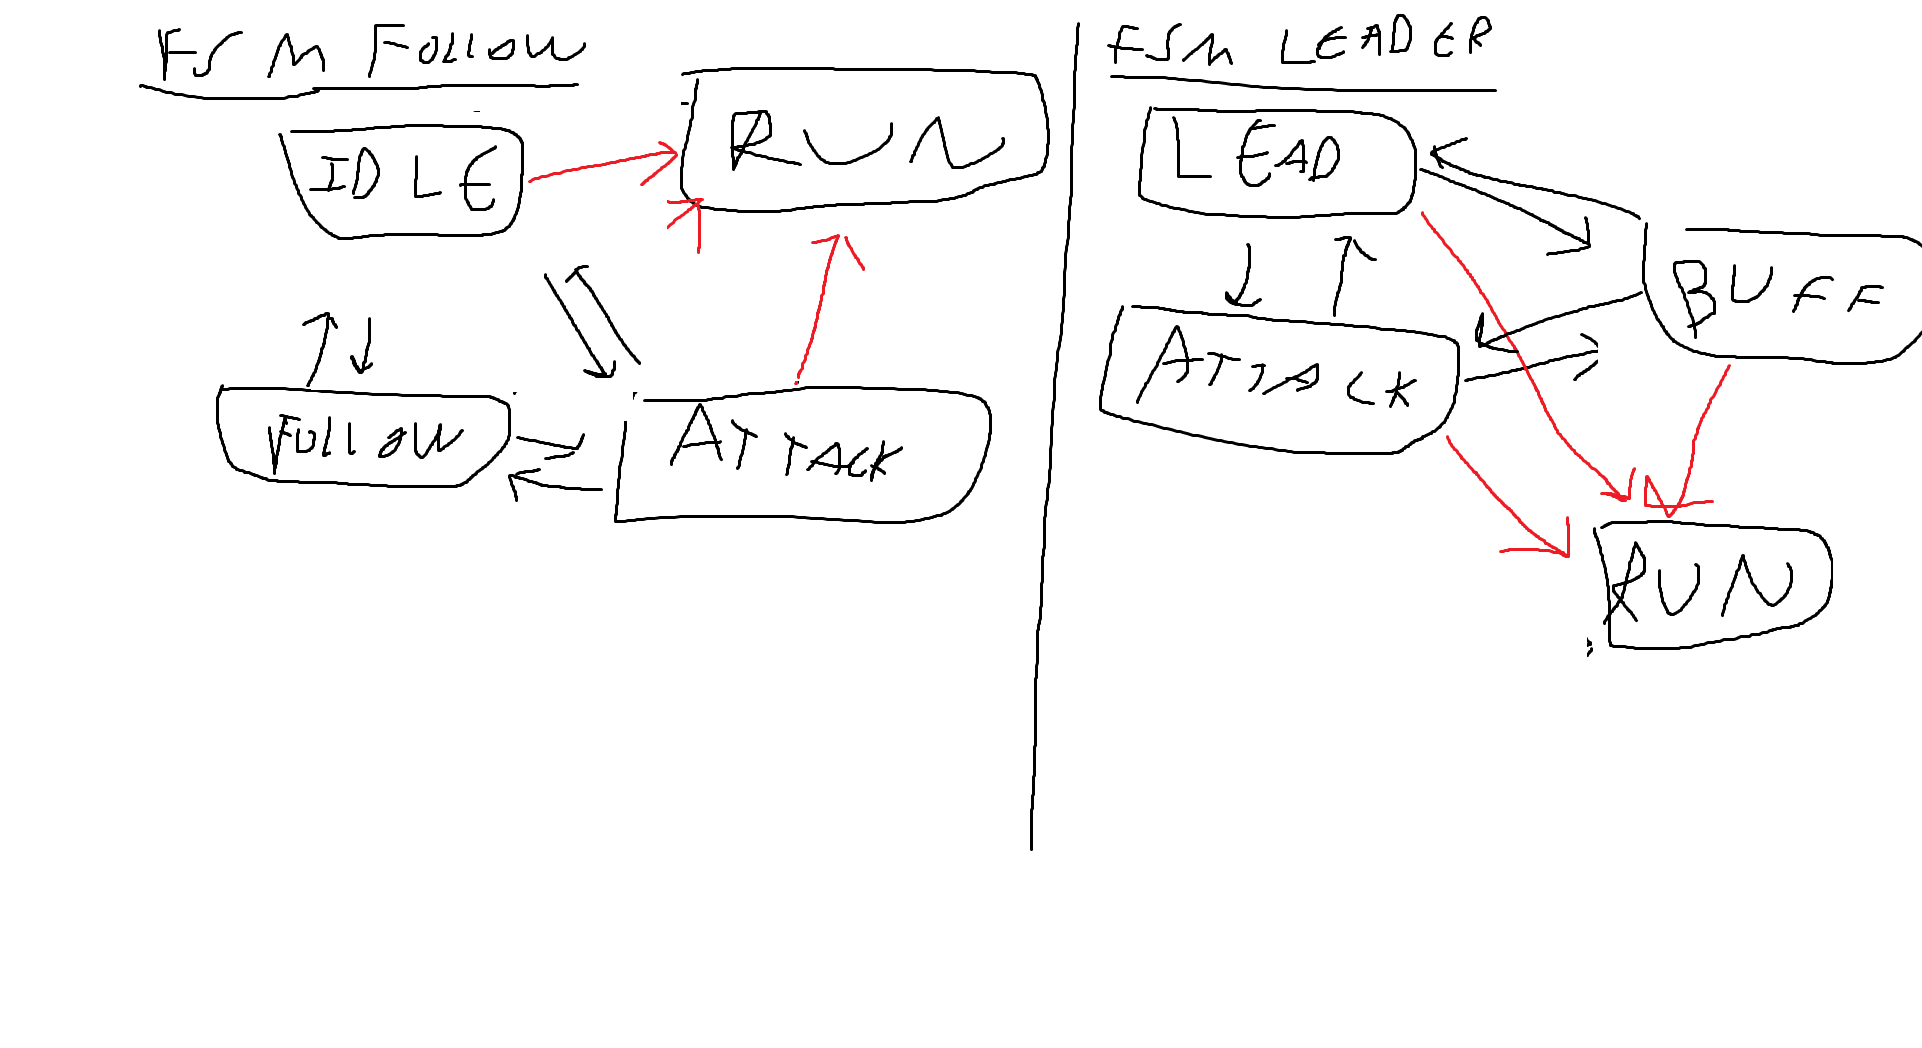 FSM FOLLOW
IDLE
RUN
FOLLOW
ATTACK
FSM LEADER
LEAD
BUFF
ATTACK
RUN